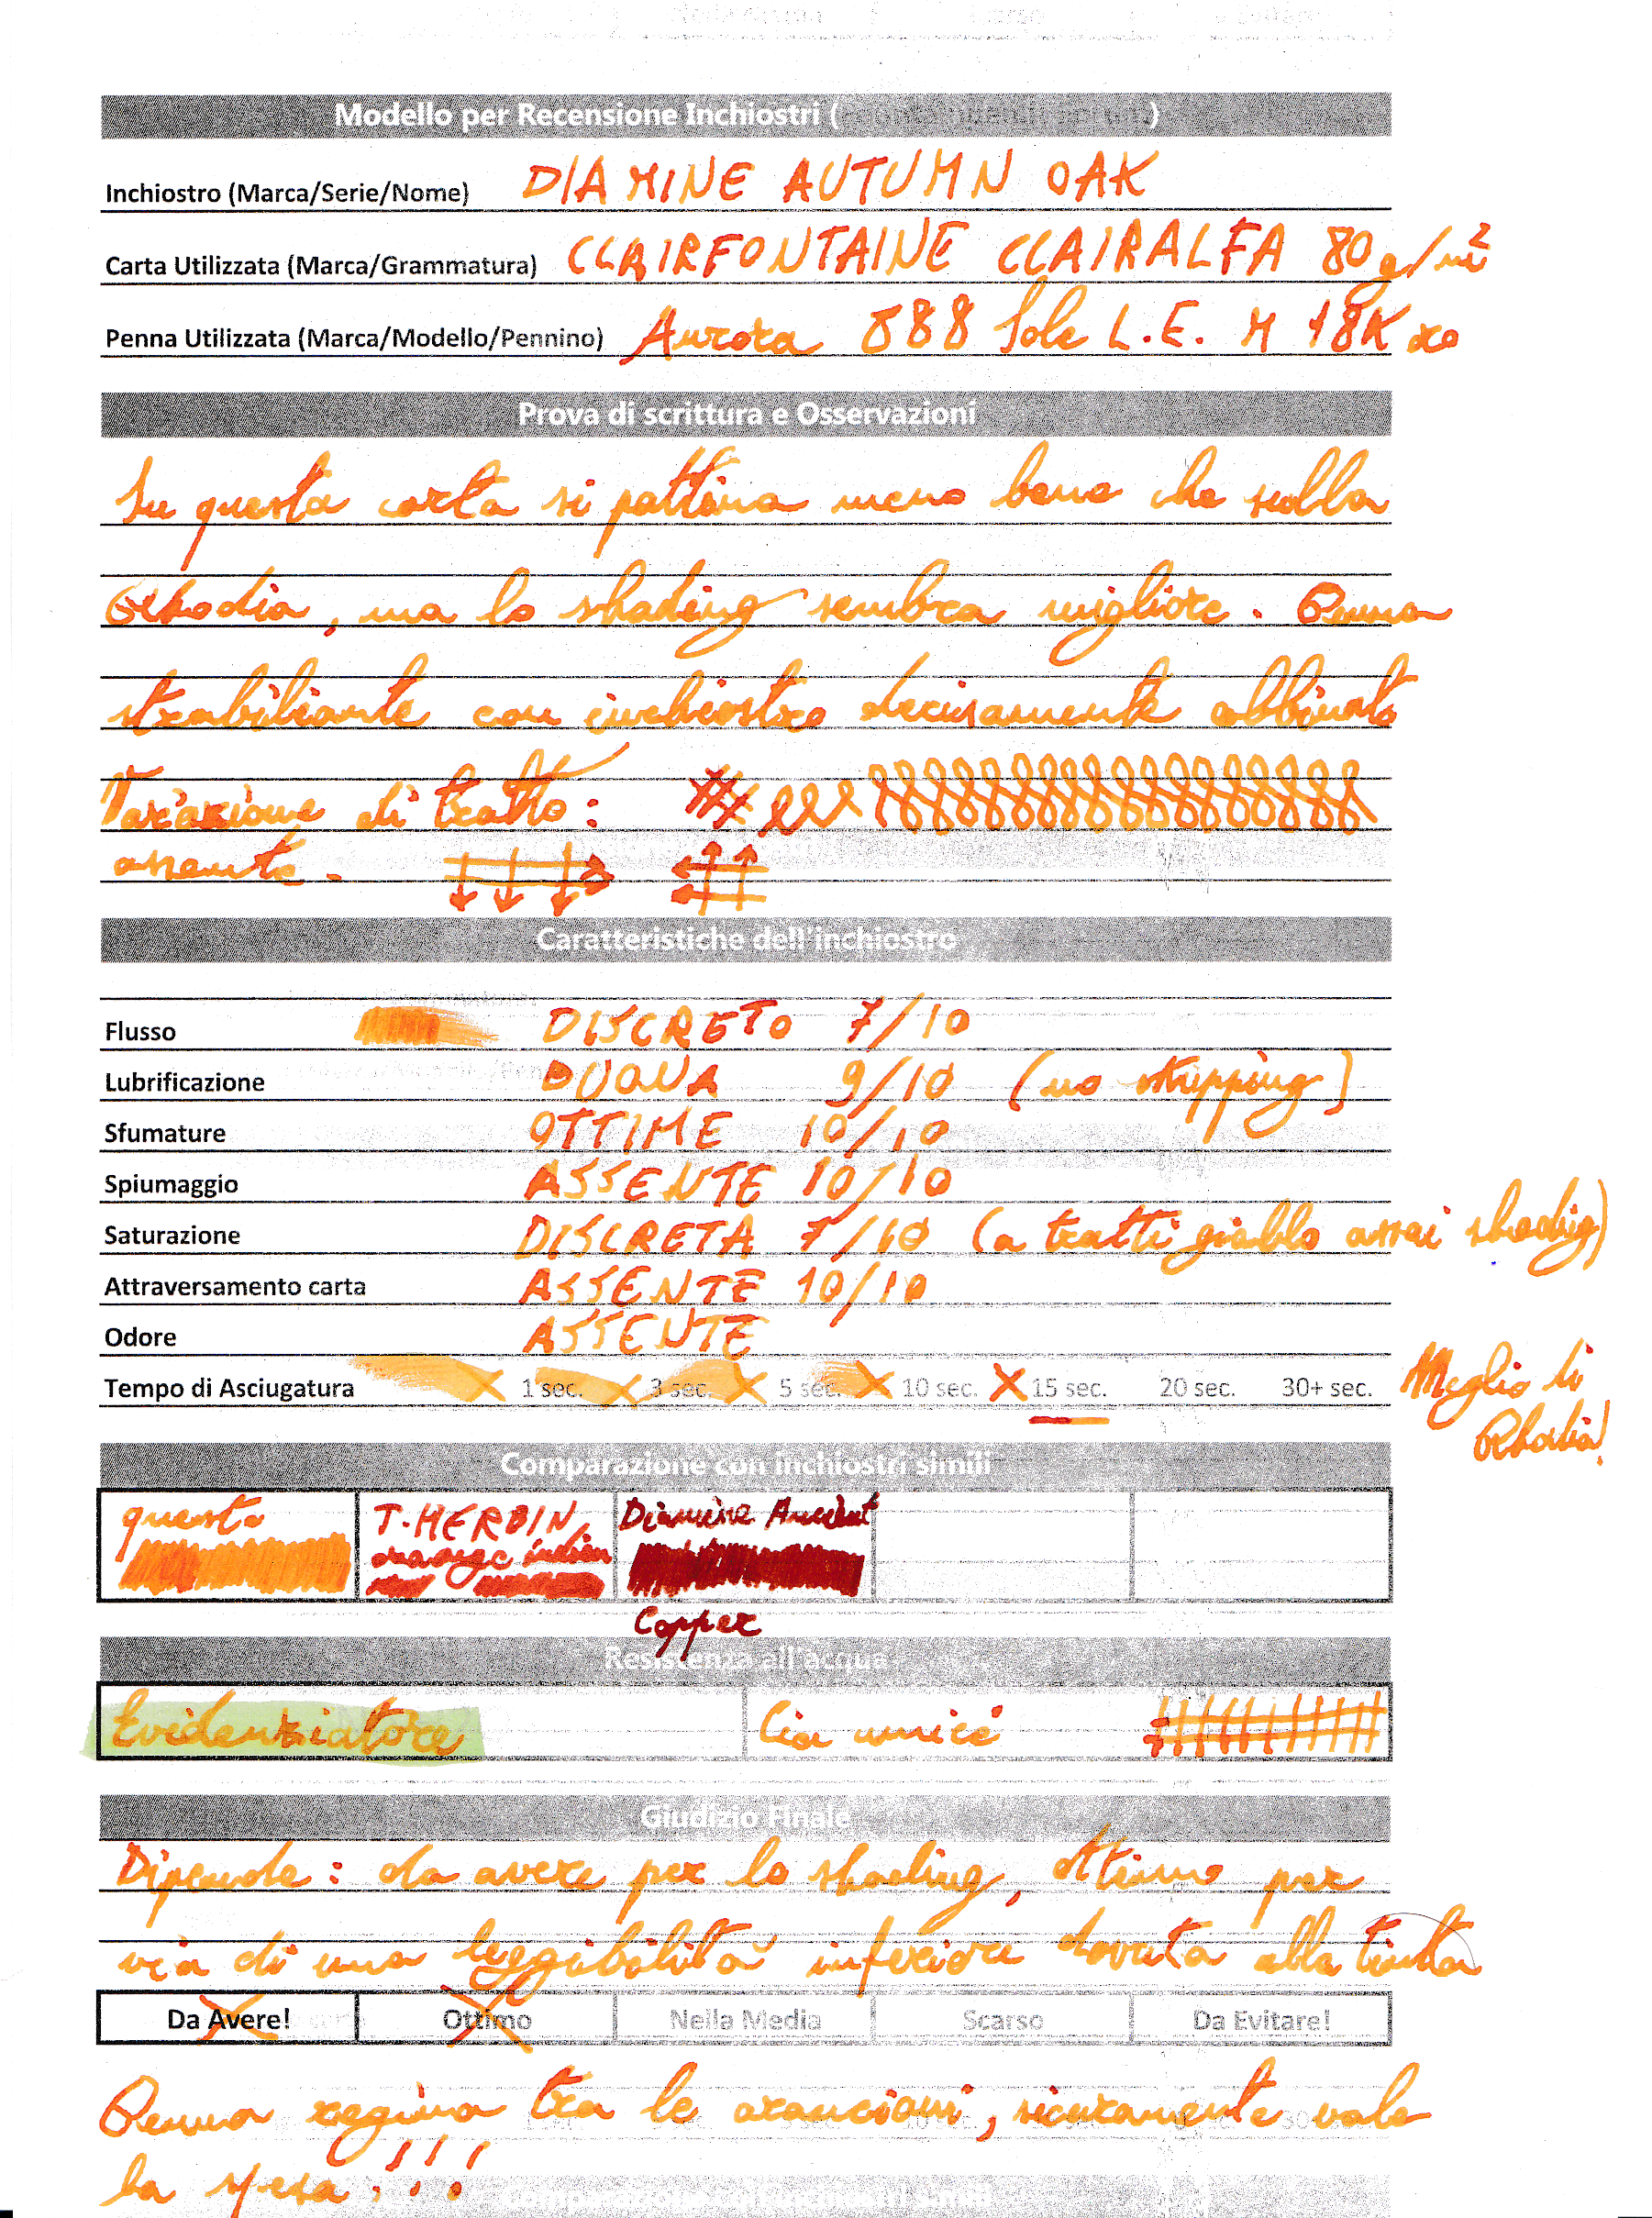 Modello per Recensione Inchiostri ( )
Inchiostro (Marca/Serie/Nome) DIAMINE AUTUMN OAK
Carta Utilizzata (Marca/Grammatura) CLAIRFONTAINE CLAIRALFA 80 g/m²
Penna Utilizzata (Marca/Modello/Pennino) Aurora 888 Sole L.E. M 18K
Prova di scrittura e Osservazioni
Su questa carta si pattina meno bene che sulla
Rhodia, ma lo shading sembra migliore. Penna
strabiliante con inchiostro decisamente abbinato
Variazione di tratto:
assente.
Caratteristiche dell'inchiostro
Flusso DISCRETO 7/10
Lubrificazione BUONA 9/10 (no skipping)
Sfumature OTTIME 10/10
Spiumaggio ASSENTE 10/10
Saturazione DISCRETA 7/10 (a tratti giallo assai shading)
Attraversamento carta ASSENTE 10/10
Odore ASSENTE
Tempo di Asciugatura 1 sec. 3 sec. 5 sec. 10 sec. 15 sec. 20 sec. 30+ sec. Meglio di
Rhodia!
Comparazione con inchiostri simili
questo J.HERBIN Diamine Ancient
orange indien
Copper
Resistenza all'acqua
Evidenziatore
Giudizio Finale
Dipende: da avere per lo shading, ottimo per
via di una leggibilità inferiore dovuta alla tinta
Da Avere! Ottimo Nella Media Scarso Da Evitare!
Penna regina tra le arancioni, sicuramente vale
la spesa!!!